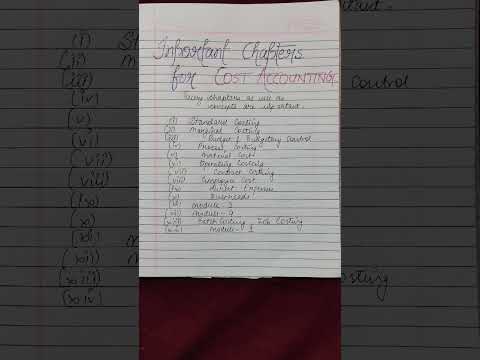 Important Chapters
for COST ACCOUNTING
Every chapters as well as
concepts are important.
(i) Standard Costing
(ii) Marginal Costing
(iii) Budget & Budgetary Control
(iv) Process Costing
(v) Material Cost
(vi) Operating Costing
(vii) Contract Costing
(viii) Employee Cost
(ix) Direct Expenses
(x) Overheads
(xi) Module - 3
(xii) Module - 4
(xiii) Batch Costing, Job Costing
(xiv) Module - 1